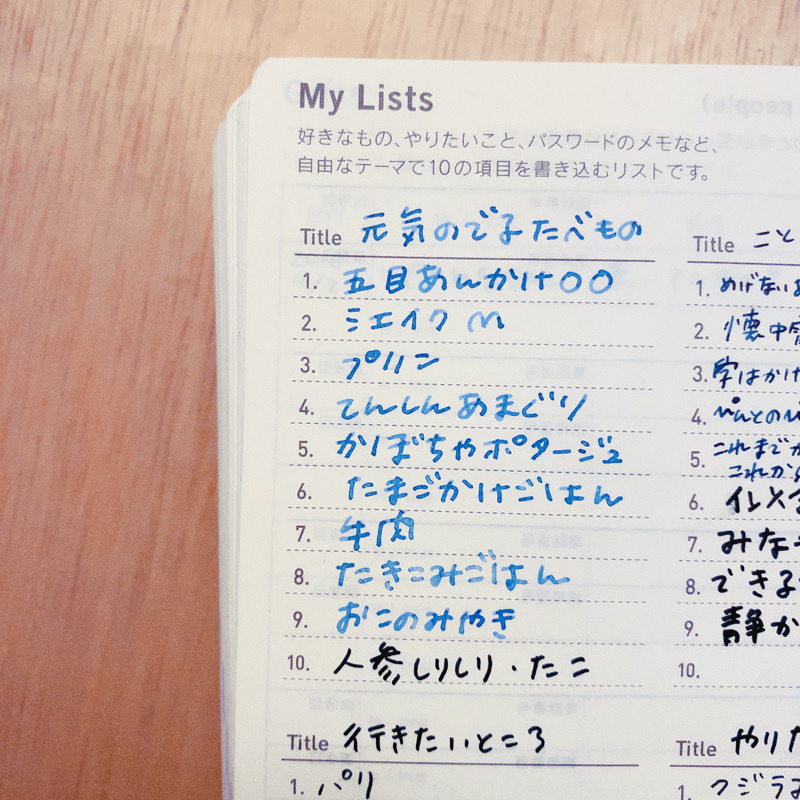 My Lists
好きなもの、やりたいこと、パスワードのメモなど、
自由なテーマで10の項目を書き込むリストです。
Title 元気のでる たべもの
1. 五目あんかけ〇〇
2. シェイク M
3. プリン
4. てんしんあまぐり
5. かぼちゃポタージュ
6. たまごかけごはん
7. 牛肉
8. たきこみごはん
9. おこのみやき
10. 人参しりしり・たこ
Title こと
1.
2. 懐中
3. 字はかけ
4.
5. これまで
これから
6.
7. みな
8. できる
9. 静か
10.
Title 行きたいところ
1. パリ
Title やりた
1. クジラ